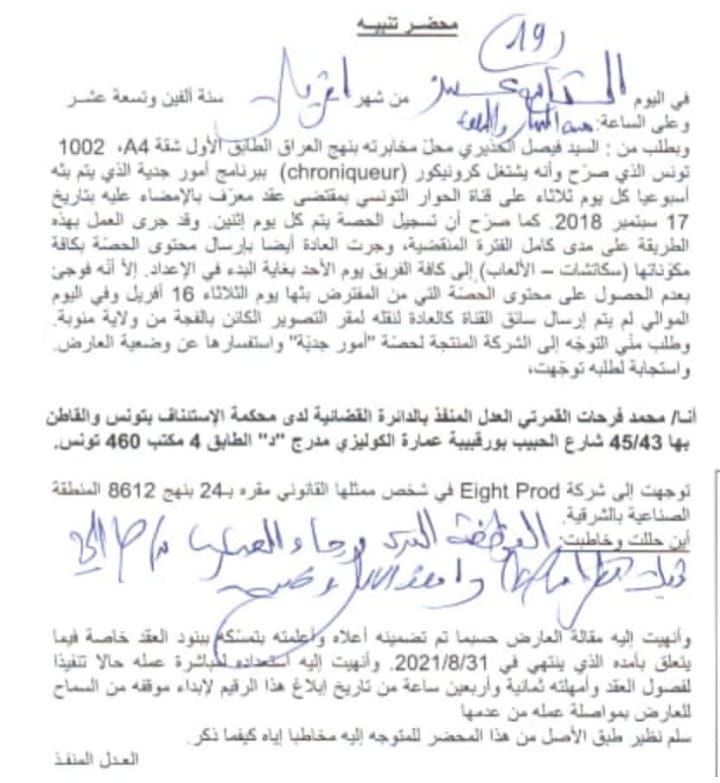 محضر تنبيه
(19)
في اليوم التاسع عشر من شهر افريل سنة ألفين وتسعة عشر
وعلى الساعة:
وبطلب من : السيد فيصل الحذيري محلّ مخابرته بنهج العراق الطابق الأول شقة A4، 1002
تونس الذي صرّح وأنه يشتغل كرونيكور (chroniqueur) ببرنامج أمور جدية الذي يتم بثه
أسبوعيا كل يوم ثلاثاء على قناة الحوار التونسي بمقتضى عقد معرّف بالإمضاء عليه بتاريخ
17 سبتمبر 2018. كما صرّح أن تسجيل الحصة يتم كل يوم إثنين. وقد جرى العمل بهذه
الطريقة على مدى كامل الفترة المنقضية، وجرت العادة أيضا بإرسال محتوى الحصّة بكافة
مكوّناتها (سكاتشات – الألعاب) إلى كافة الفريق يوم الأحد بغاية البدء في الإعداد. إلاّ أنّه فوجئ
بعدم الحصول على محتوى الحصّة التي من المفترض بثها يوم الثلاثاء 16 أفريل وفي اليوم
الموالي لم يتم إرسال سائق القناة كالعادة لنقله لمقر التصوير الكائن بالفجة من ولاية منوبة.
وطلب منّي التوجّه إلى الشركة المنتجة لحصّة "أمور جديّة" واستفسارها عن وضعية العارض.
واستجابة لطلبه توجّهت،
أنا/ محمد فرحات القمرتي العدل المنفذ بالدائرة القضائية لدى محكمة الإستئناف بتونس والقاطن
بها 45/43 شارع الحبيب بورقيبة عمارة الكوليزي مدرج "د" الطابق 4 مكتب 460 تونس.
توجهت إلى شركة Eight Prod في شخص ممثلها القانوني مقره بـ24 بنهج 8612 المنطقة
الصناعية بالشرقية.
أين حللت وخاطبت:
وأنهيت إليه مقالة العارض حسبما تم تضمينه أعلاه وأعلمته بتمسّكه ببنود العقد خاصة فيما
يتعلق بأمده الذي ينتهي في 2021/8/31. وأنهيت إليه استعداده لمباشرة عمله حالا تنفيذا
لفصول العقد وأمهلته ثمانية وأربعين ساعة من تاريخ إبلاغ هذا الرقيم لإبداء موقفه من السماح
للعارض بمواصلة عمله من عدمها
سلم نظير طبق الأصل من هذا المحضر للمتوجه إليه مخاطبا إياه كيفما ذكر.
العدل المنفذ